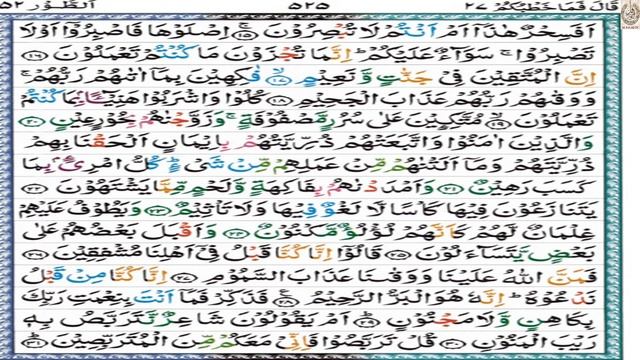 قَالَ فَمَا خَطْبُكُمْ ٢٧ ٥٢٥ اَلطُّوْر ٥٢
اَفَسِحْرٌ هٰذَاۤ اَمْ اَنْتُمْ لَا تُبْصِرُوْنَ ۝١٥ اِصْلَوْهَا فَاصْبِرُوْۤا اَوْ لَا
تَصْبِرُوْا ۚ سَوَآءٌ عَلَيْكُمْ ؕ اِنَّمَا تُجْزَوْنَ مَا كُنْتُمْ تَعْمَلُوْنَ ۝١٦
اِنَّ الْمُتَّقِيْنَ فِيْ جَنّٰتٍ وَّ نَعِيْمٍ ۝١٧ فٰكِهِيْنَ بِمَاۤ اٰتٰىهُمْ رَبُّهُمْ ۚ
وَ وَقٰىهُمْ رَبُّهُمْ عَذَابَ الْجَحِيْمِ ۝١٨ كُلُوْا وَاشْرَبُوْا هَنِيْٓـًٔۢا بِمَا كُنْتُمْ
تَعْمَلُوْنَ ۝١٩ مُتَّكِـِٕيْنَ عَلٰى سُرُرٍ مَّصْفُوْفَةٍ ۚ وَ زَوَّجْنٰهُمْ بِحُوْرٍ عِيْنٍ ۝٢٠
وَالَّذِيْنَ اٰمَنُوْا وَاتَّبَعَتْهُمْ ذُرِّيَّتُهُمْ بِاِيْمَانٍ اَلْحَقْنَا بِهِمْ
ذُرِّيَّتَهُمْ وَمَاۤ اَلَتْنٰهُمْ مِّنْ عَمَلِهِمْ مِّنْ شَيْءٍ ؕ كُلُّ امْرِئٍۢ بِمَا
كَسَبَ رَهِيْنٌ ۝٢١ وَ اَمْدَدْنٰهُمْ بِفَاكِهَةٍ وَّ لَحْمٍ مِّمَّا يَشْتَهُوْنَ ۝٢٢
يَتَنَازَعُوْنَ فِيْهَا كَاْسًا لَّا لَغْوٌ فِيْهَا وَلَا تَاْثِيْمٌ ۝٢٣ وَيَطُوْفُ عَلَيْهِمْ
غِلْمَانٌ لَّهُمْ كَاَنَّهُمْ لُؤْلُؤٌ مَّكْنُوْنٌ ۝٢٤ وَ اَقْبَلَ بَعْضُهُمْ عَلٰى
بَعْضٍ يَّتَسَآءَلُوْنَ ۝٢٥ قَالُوْۤا اِنَّا كُنَّا قَبْلُ فِيْۤ اَهْلِنَا مُشْفِقِيْنَ ۝٢٦
فَمَنَّ اللّٰهُ عَلَيْنَا وَ وَقٰىنَا عَذَابَ السَّمُوْمِ ۝٢٧ اِنَّا كُنَّا مِنْ قَبْلُ
نَدْعُوْهُ ؕ اِنَّهٗ هُوَ الْبَرُّ الرَّحِيْمُ ۝٢٨ فَذَكِّرْ فَمَاۤ اَنْتَ بِنِعْمَتِ رَبِّكَ
بِكَاهِنٍ وَّ لَا مَجْنُوْنٍ ؕ۝٢٩ اَمْ يَقُوْلُوْنَ شَاعِرٌ نَّتَرَبَّصُ بِهٖ
رَيْبَ الْمَنُوْنِ ۝٣٠ قُلْ تَرَبَّصُوْا فَاِنِّيْ مَعَكُمْ مِّنَ الْمُتَرَبِّصِيْنَ ۝٣١